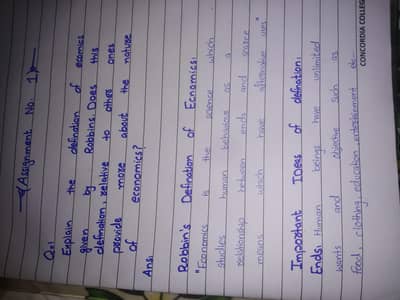 (Assignment No: 1)
Q:1
Explain the defination of ecomics
given by Robbins. Does this
defination, relative to other ones
provide more about the nature
of economics?
Ans:
Robbin's Defination of Ecnomics:
"Economics is the science which
studies human behaviour as a
relationship between ends and scarce
means which have alternative uses"
Important IDeas of defination:
Ends: Human beings have unlimited
wants and objective such as
food, clothing, education, entertainment etc.
CONCORDIA COLLEG